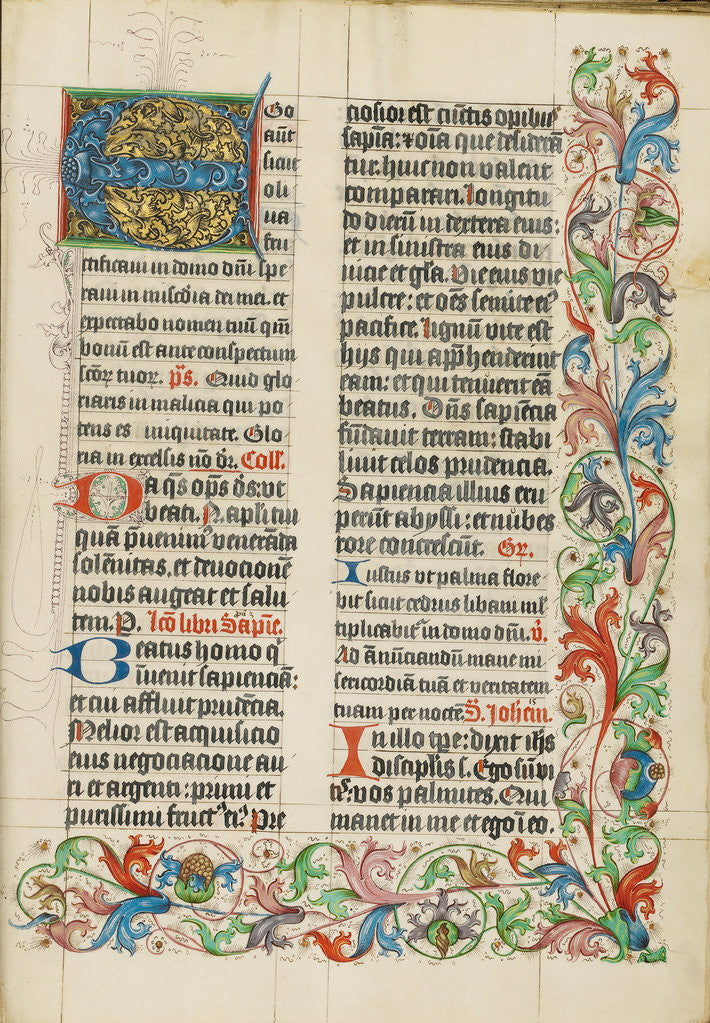 Ego
aūt
sicut
oli
ua
fru
ctificaui in domo dn̄i spe
raui in misc̄dia dei mei. et
expectabo nomen tuū qm̄
bonū est ante conspectum
sc̄oꝝ tuoꝝ. p̄s. Quid glo
riaris in malicia qui po
tens es iniquitate. Glo
ria in excelsis nō dr̄. Coll̄.
Da q̄s op̄s ds̄: ut
beati. N. apl̄i tui
quā p̄uenim᷒ veneranda
solēnitas. et deuocionē
nobis augeat et salu
tem. P. Lc̄o libri Sapiē.
Beatus homo q̄
inuenit sapienciā:
et cui affluit prudēcia.
Melior est acquisicio
eius negociacione au
ri et argenti: primi et
purissimi fruct᷒ ei᷒. Pre
ciosior est cūctis opibus
sapīa: ⁊ oīa que desiderā
tur. huic non valent
comparari. Longitu
do dierū in dextera eius:
et in sinistra eius di
uicie et gl̄a. Vie eius vie
pulcre: et oēs semite ei᷒
pacifice. Lignū vite est
hijs qui app̄henderint
eam: et qui tenuerit eā
beatus. Dn̄s sapiēcia
fūdauit terram: stabi
liuit celos prudencia.
Sapiencia illius eru
perūt abyssi: et nubes
rore concrescūt. Gr̄.
Iustus vt palma flore
bit sicut cedrus libani ml̄
tiplicabit᷑ in domo dn̄i. v̄.
Ad ānūciandū mane mi
sericordiā tuā et veritatem
tuam per noctē. S. Joh̄em.
In illo tp̄e: dixit ih̄s
discipl̄is s. Ego sū vi
tis: vos palmites. Qui
manet in me et ego ī eo.